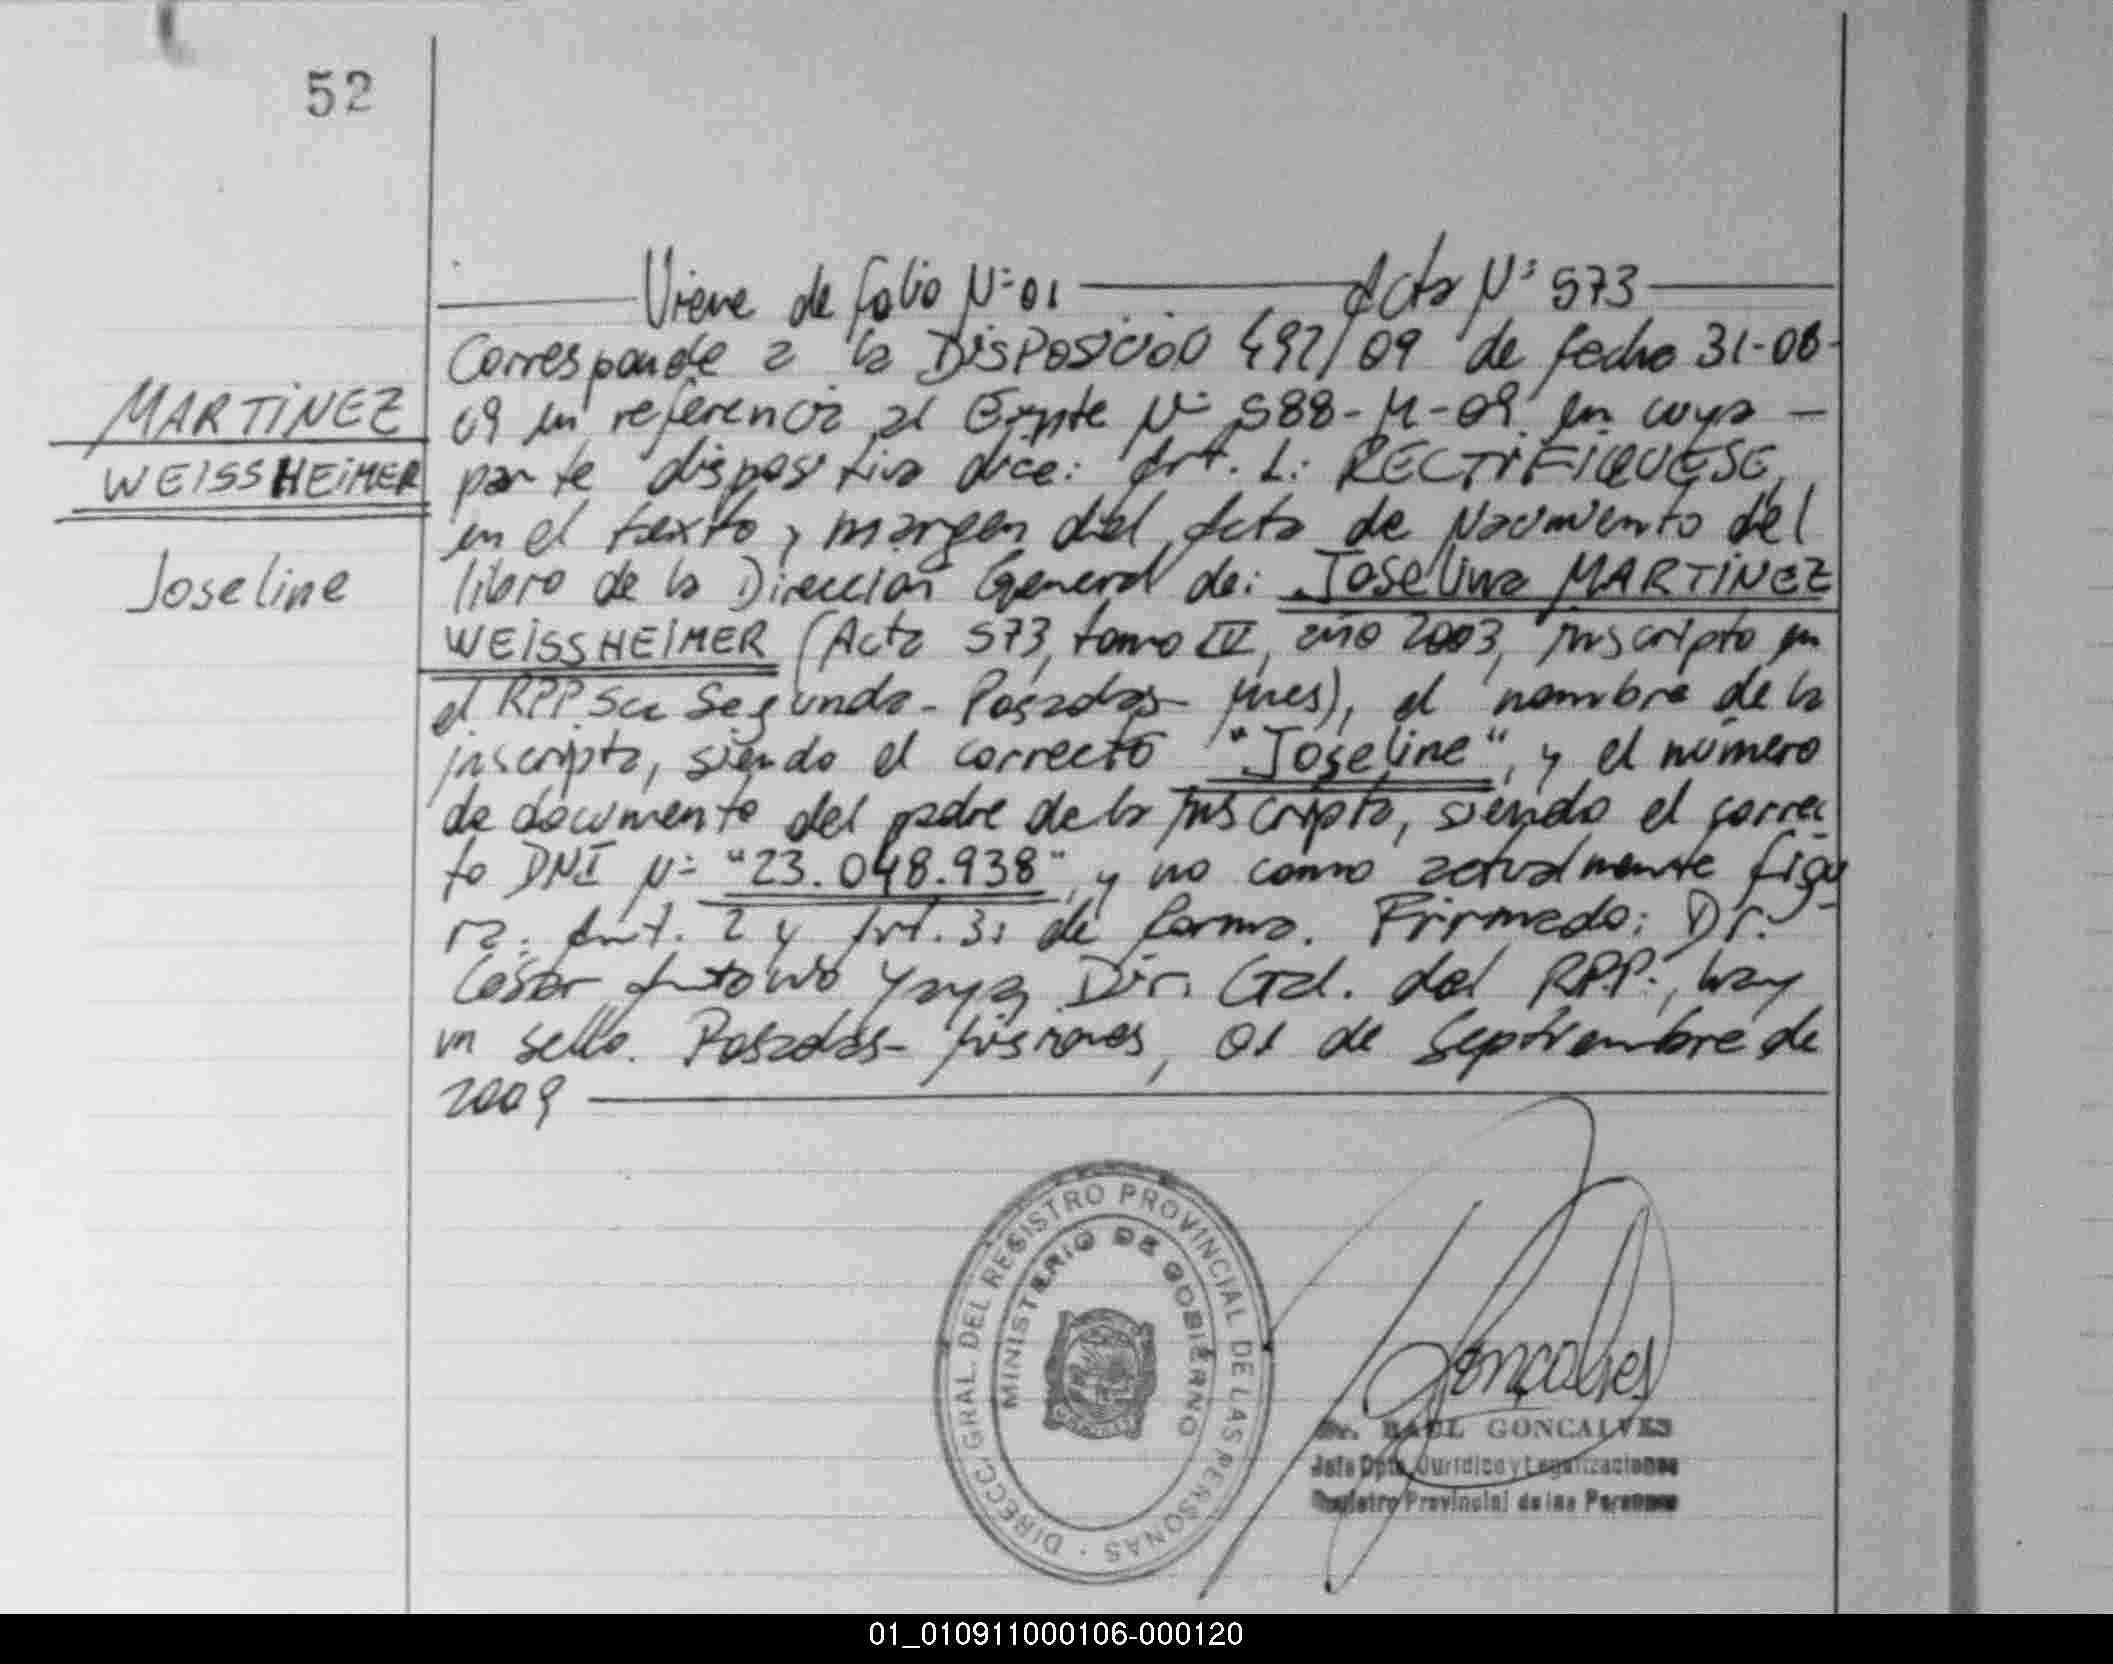 52
Viene de folio Nº 01 Acta Nº 573
Corresponde a la DISPOSICIÓN 492/09 de fecha 31-08-
MARTINEZ
WEISSHEIMER
Joseline
09 en referencia al Expte Nº 588-M-09 en cuya
parte dispositiva dice: Art. 1: RECTIFIQUESE,
en el texto y margen del Acta de Nacimiento del
libro de la Dirección General de: Joselina MARTINEZ
WEISSHEIMER (Acta 573, tomo IV, año 2003, inscripta en
el RPP Sec Segunda - Posadas - Mnes), el nombre de la
inscripta, siendo el correcto "Joseline", y el número
de documento del padre de la inscripta, siendo el correc
to DNI Nº "23.048.938", y no como actualmente figu
ra. Art. 2 y Art. 3: de forma. Firmado: Dr.
César Antonio Yaya, Dir. Gral. del RPP., hay
un sello. Posadas - Misiones, 01 de Septiembre de
2009
DIRECC. GRAL. DEL REGISTRO PROVINCIAL DE LAS PERSONAS
MINISTERIO DE GOBIERNO
Goncalves
Dr. RAUL GONCALVES
Jefe Dpto. Jurídico y Legalizaciones
Registro Provincial de las Personas
01_010911000106-000120